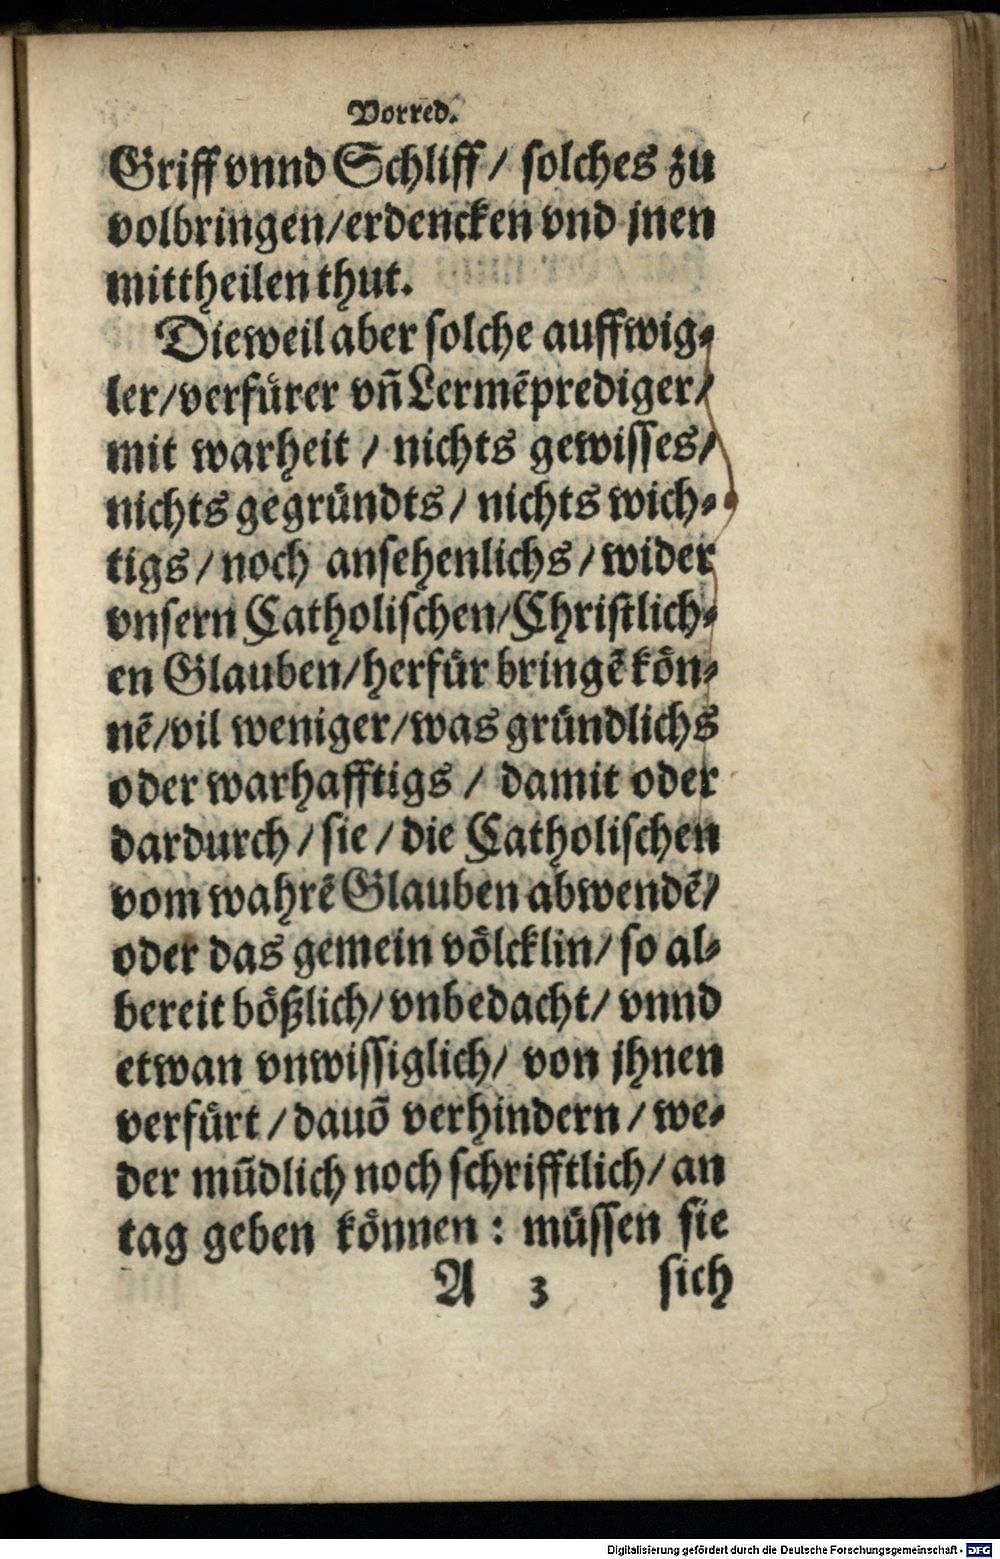 Vorred.
Griff vnnd Schliff / solches zu
volbringen/erdencken vnd jnen
mittheilen thut.
Dieweil aber solche auffwig⸗
ler/verfürer vñ Lermẽprediger/
mit warheit / nichts gewisses/
nichts gegründts / nichts wich⸗
tigs / noch ansehenlichs / wider
vnsern Catholischen/Christlich⸗
en Glauben/herfür bringẽ kön⸗
nẽ/vil weniger/was gründlichs
oder warhafftigs / damit oder
dardurch / sie / die Catholischen
vom wahrẽ Glauben abwendẽ/
oder das gemein völcklin/ so al⸗
bereit bößlich/ vnbedacht/ vnnd
etwan vnwissiglich/ von jhnen
verfürt / dauõ verhindern / we⸗
der mũdlich noch schrifftlich/ an
tag geben können : müssen sie
A 3 sich
Digitalisierung gefördert durch die Deutsche Forschungsgemeinschaft - DFG